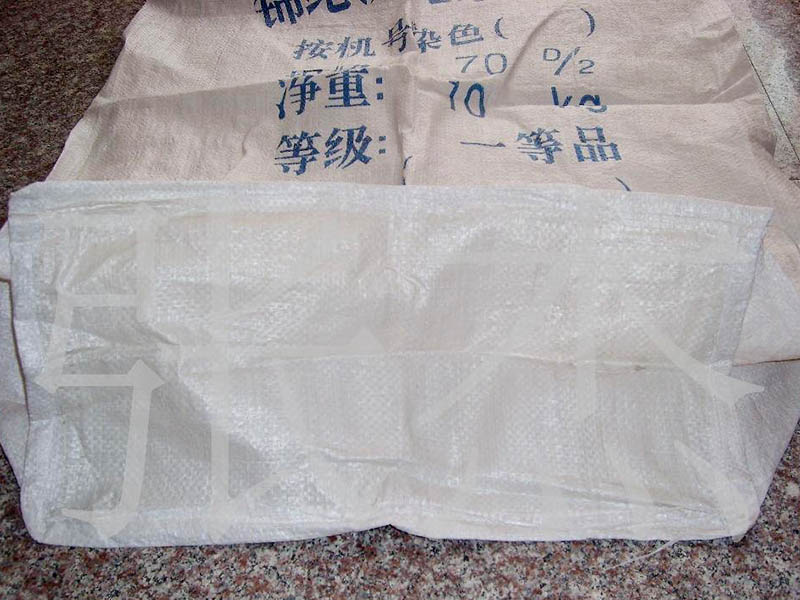 按机 染色( )
70 D/2
净重: 10 kg
等级: 一等品
)
张杰